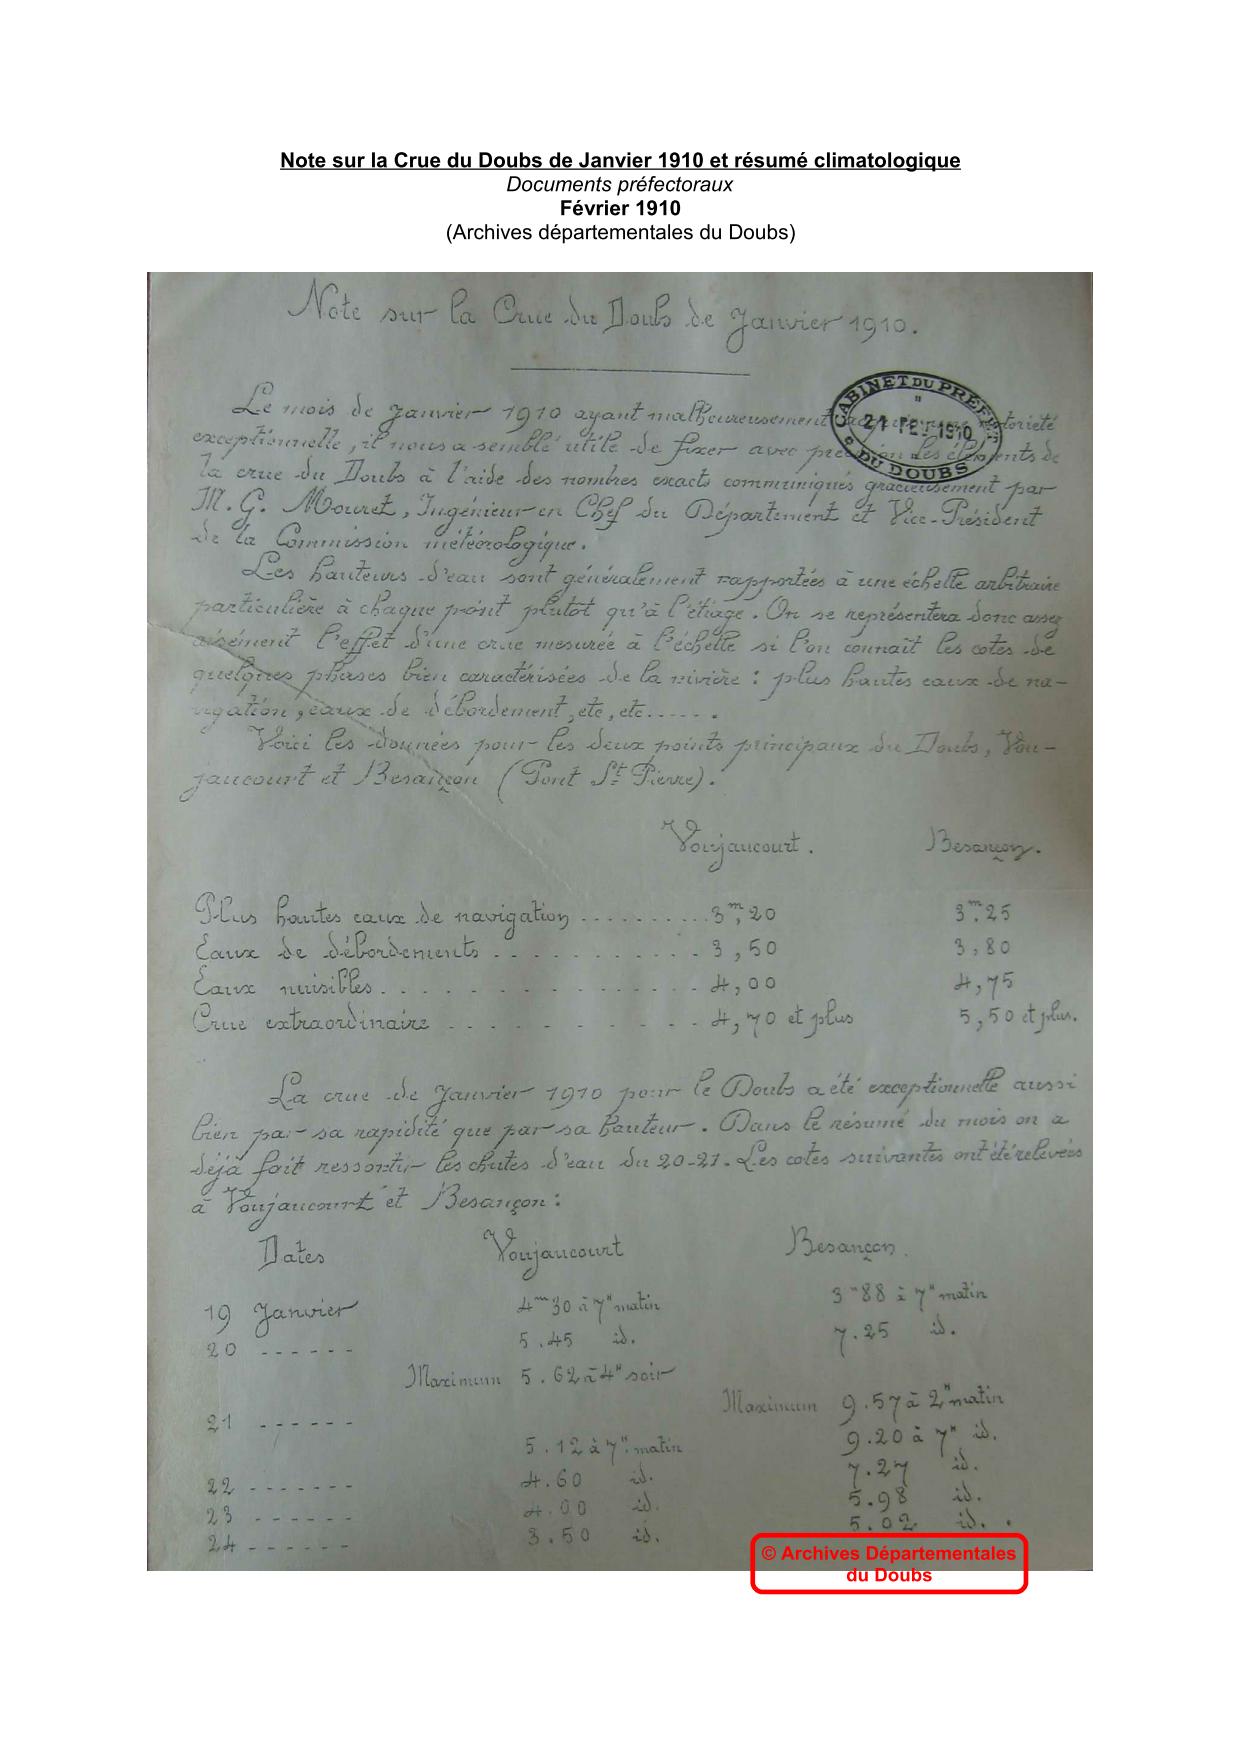 Note sur la Crue du Doubs de Janvier 1910 et résumé climatologique
Documents préfectoraux
Février 1910
(Archives départementales du Doubs)
Note sur la Crue du Doubs de Janvier 1910.
CABINET DU PREFET
21 FEV 1910
DU DOUBS
Le mois de Janvier 1910 ayant malheureusement notoriété
exceptionnelle, il nous a semblé utile de fixer avec précision les éléments de
la crue du Doubs à l'aide des nombres exacts communiqués gracieusement par
M. G. Mouret, Ingénieur en Chef du Département et Vice-Président
de la Commission météorologique.
Les hauteurs d'eau sont généralement rapportées à une échelle arbitraire
particulière à chaque point plutôt qu'à l'étiage. On se représentera donc assez
aisément l'effet d'une crue mesurée à l'échelle si l'on connaît les cotes de
quelques phases bien caractérisées de la rivière : plus hautes eaux de na-
vigation, eaux de débordement, etc, etc......
Voici les données pour les deux points principaux du Doubs, Vou-
jaucourt et Besançon (Pont St Pierre).
Voujaucourt. Besançon.
Plus hautes eaux de navigation .......... 3m,20 3m,25
Eaux de débordements ........... 3,50 3,80
Eaux nuisibles ................ 4,00 4,75
Crue extraordinaire ............ 4,70 et plus 5,50 et plus.
La crue de Janvier 1910 pour le Doubs a été exceptionnelle aussi
bien par sa rapidité que par sa hauteur. Dans le résumé du mois on a
déjà fait ressortir les chutes d'eau du 20-21. Les cotes suivantes ont été relevées
à Voujaucourt et Besançon :
Dates Voujaucourt Besançon.
19 Janvier 4m30 à 7h matin 3m88 à 7h matin
20 ------ 5.45 id. 7.25 id.
Maximum 5.62 à 4h soir
21 ------ Maximum 9.57 à 2h matin
5.12 à 7h matin 9.20 à 7h id.
22 ------- 4.60 id. 7.27 id.
23 ------ 4.00 id. 5.98 id.
24 ------ 3.50 id. 5.02 id.
© Archives Départementales
du Doubs